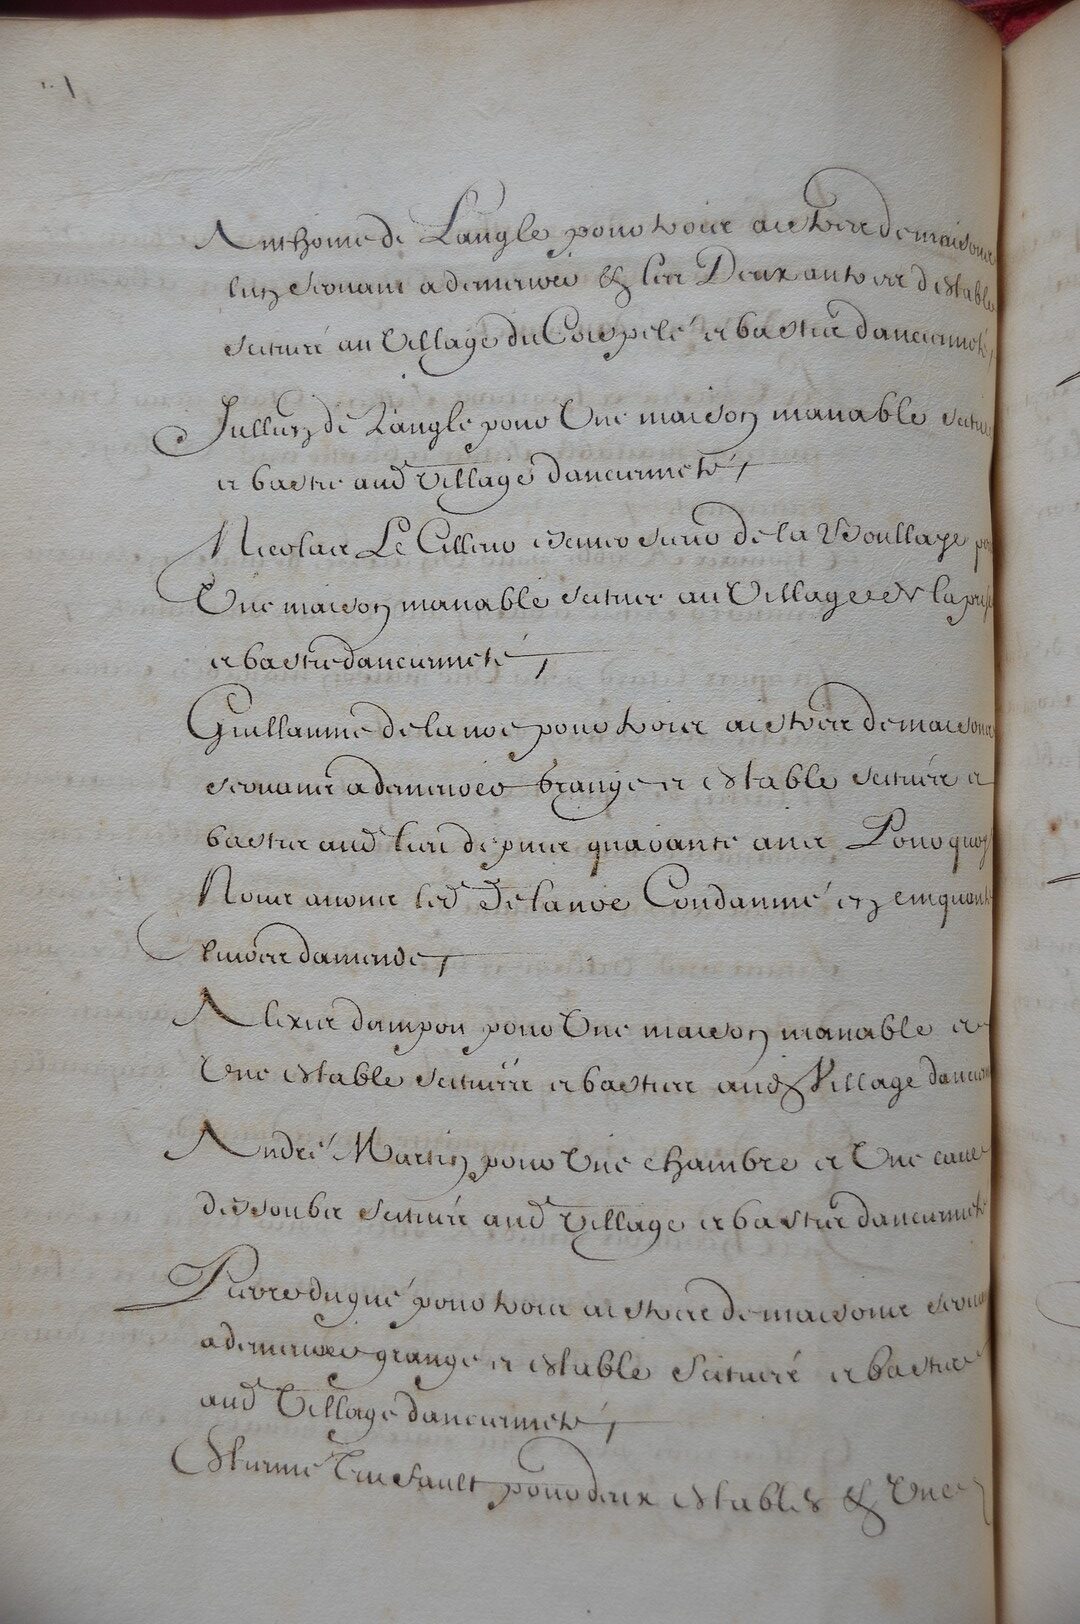 Anthoine de Langle pour trois aistres de maisons
l'un servant a demeurer & les Deux autres d'estable
scituez au Village du Coispelé et bastie d'ancienneté
Jullien de Langle pour Une maison manable scitué
et bastie aud Village d'ancienneté
Nicolas Le escuier sieur de la Boullaye pour
Une maison manable scituée au Village de la
et bastie d'ancienneté
Guillaume de lanoe pour trois aistres de maisons
servans a demeurer grange et estable scituez et
bastis aud lieu depuis quarante ans Pourquoy
Nous avons led De lanoe Condamné en cinquante
livres d'amende
Alexis dampou pour Une maison manable et
Une estable scituez et bastie aud Village d'ancien
André Martin pour Une chambre et Une cave
dessoubs scituez aud Village et bastie d'ancienneté
Pierre dugué pour trois aistres de maisons servant
a demeurer grange et estable scituez et bastis
aud Village d'ancienneté
Estienne pour deux estables & Une